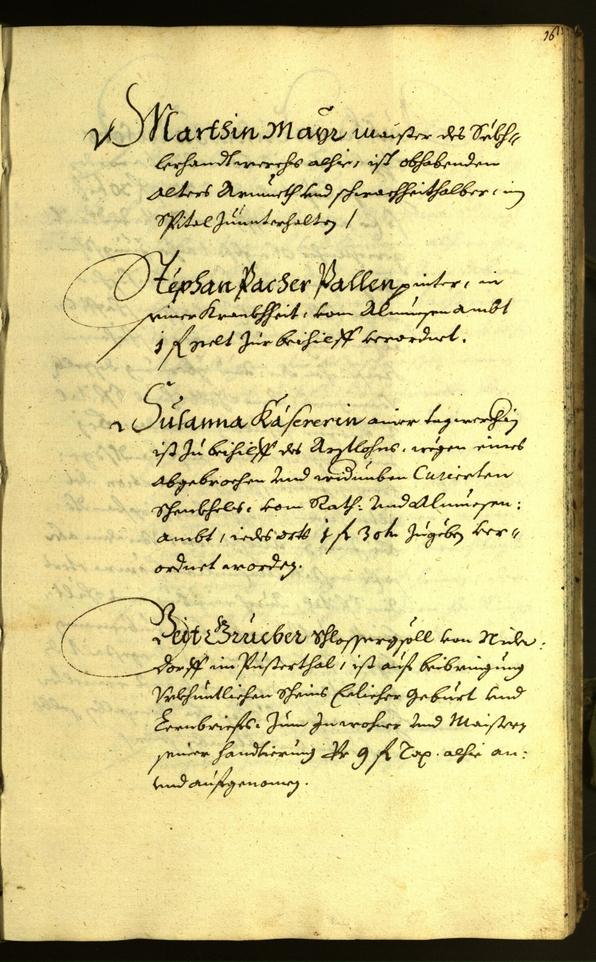 16
Marthin Mayr maister des Säckh-
lerhandtwerchs alhie, ist obhabenden
alters Armueth und schwachheithalber, im
Spital zuunterhalten /
Stephan Pacher Pallenpinter, in
seiner Kranckhheit, vom Almuesen ambt
1 fl zur beihilff verordnet.
Susanna Käsererin ainer tagwercherin
ist zu beihilff des Arztlohns, wegen eines
abgebrochen und widumben Curierten
Schenkhels, vom Rath: und Almuesen:
ambt, iedes orts 1 fl 30 kr zugeben ver-
ordnet worden.
Veyt Grueber Schlossergsöll von Nider:
dorff im Pusterthal, ist auf beibringung
Urkhuntlichen scheins Eelicher geburt und
Lernbriefs, zum Inwohner und Maister
seiner handtierung Per 9 fl Tax. alhie an:
und aufgenomen.